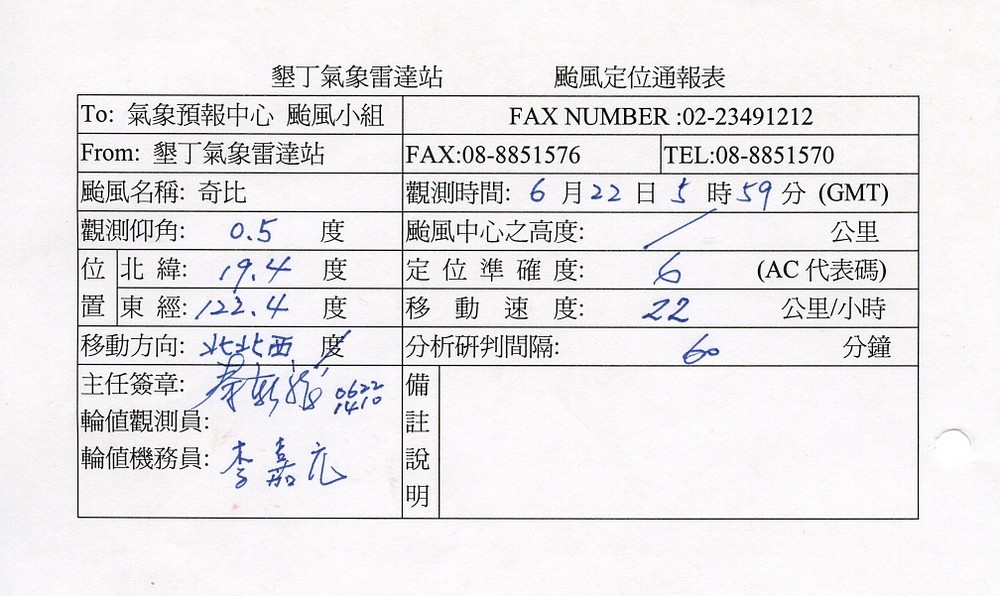 墾丁氣象雷達站 颱風定位通報表
To: 氣象預報中心 颱風小組 FAX NUMBER :02-23491212
From: 墾丁氣象雷達站 FAX:08-8851576 TEL:08-8851570
颱風名稱: 奇比 觀測時間: 6 月 22 日 5 時 59 分 (GMT)
觀測仰角: 0.5 度 颱風中心之高度: / 公里
位置 北 緯: 19.4 度 定 位 準 確 度: 6 (AC 代表碼)
東 經: 122.4 度 移 動 速 度: 22 公里/小時
移動方向: 北北西 度 分析研判間隔: 60 分鐘
主任簽章: 0622 1410 備註說明
輪值觀測員:
輪值機務員: 李嘉